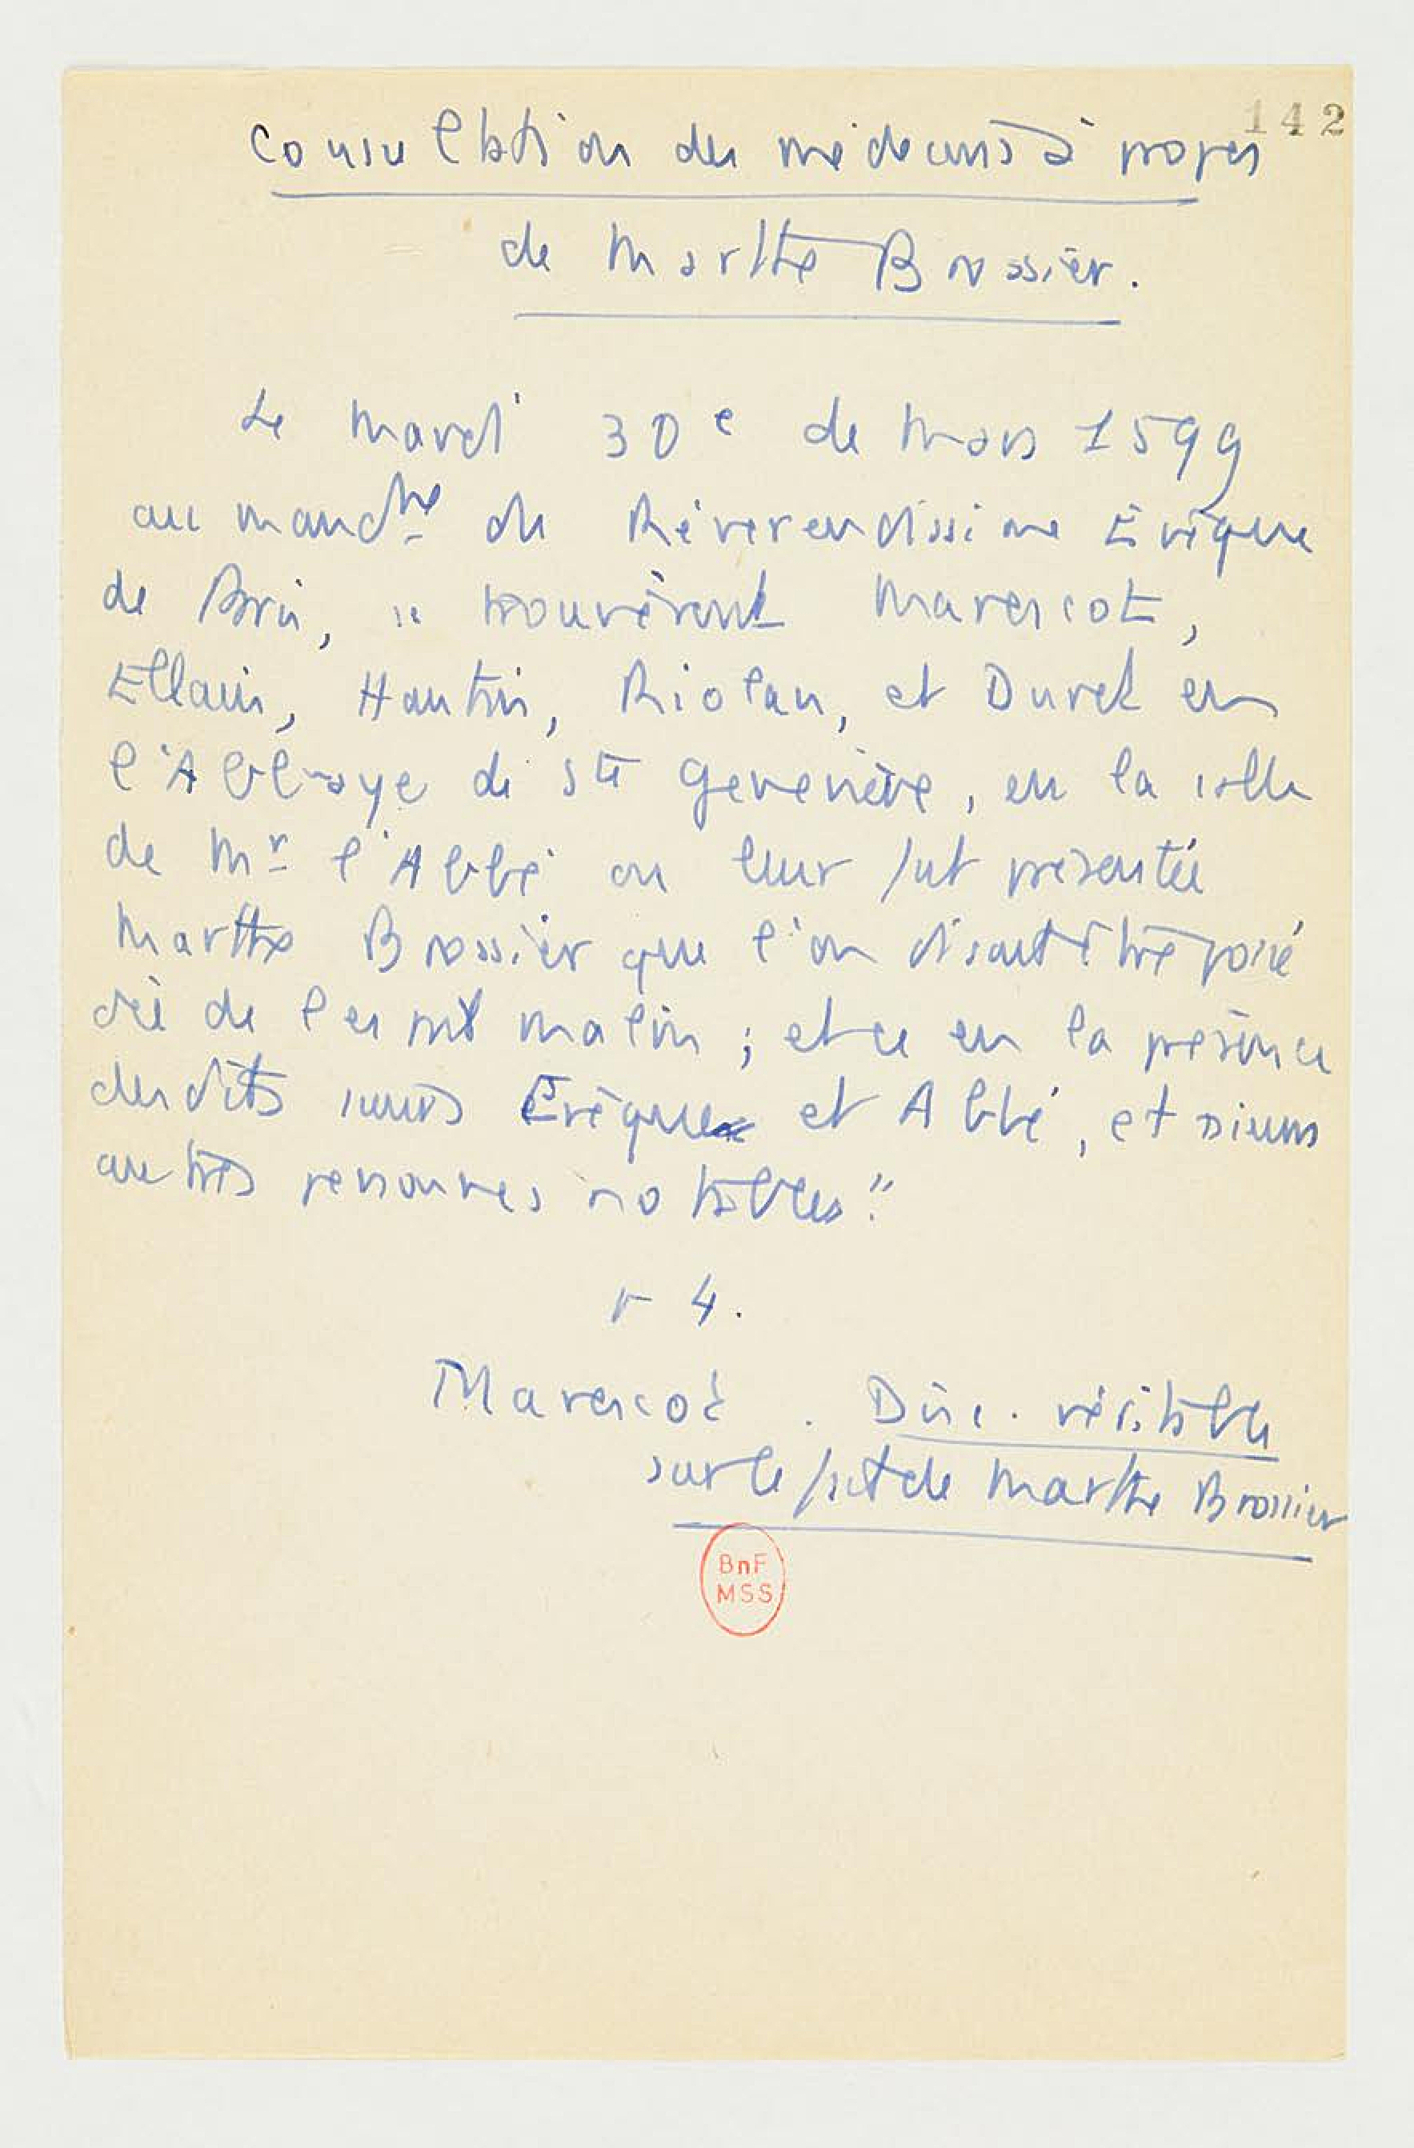 142
Consultation des médecins à propos
de Marthe Brossier.
Le mardi 30e de Mars 1599
au mandt du Réverendissime Evêque
de Paris, se trouvèrent Marescot,
Ellain, Hautin, Riolan, et Duret en
l'Abbaye de Ste Geneviève, en la salle
de Mr l'Abbé où leur fut présentée
Marthe Brossier que l'on disait être possé
dée de l'esprit malin ; et ce en la présence
desdits sieurs Evêque et Abbé, et
autres personnes notables".
r 4.
Marescot. Disc. véritable
sur le fait de Marthe Brossier
BnF
MSS